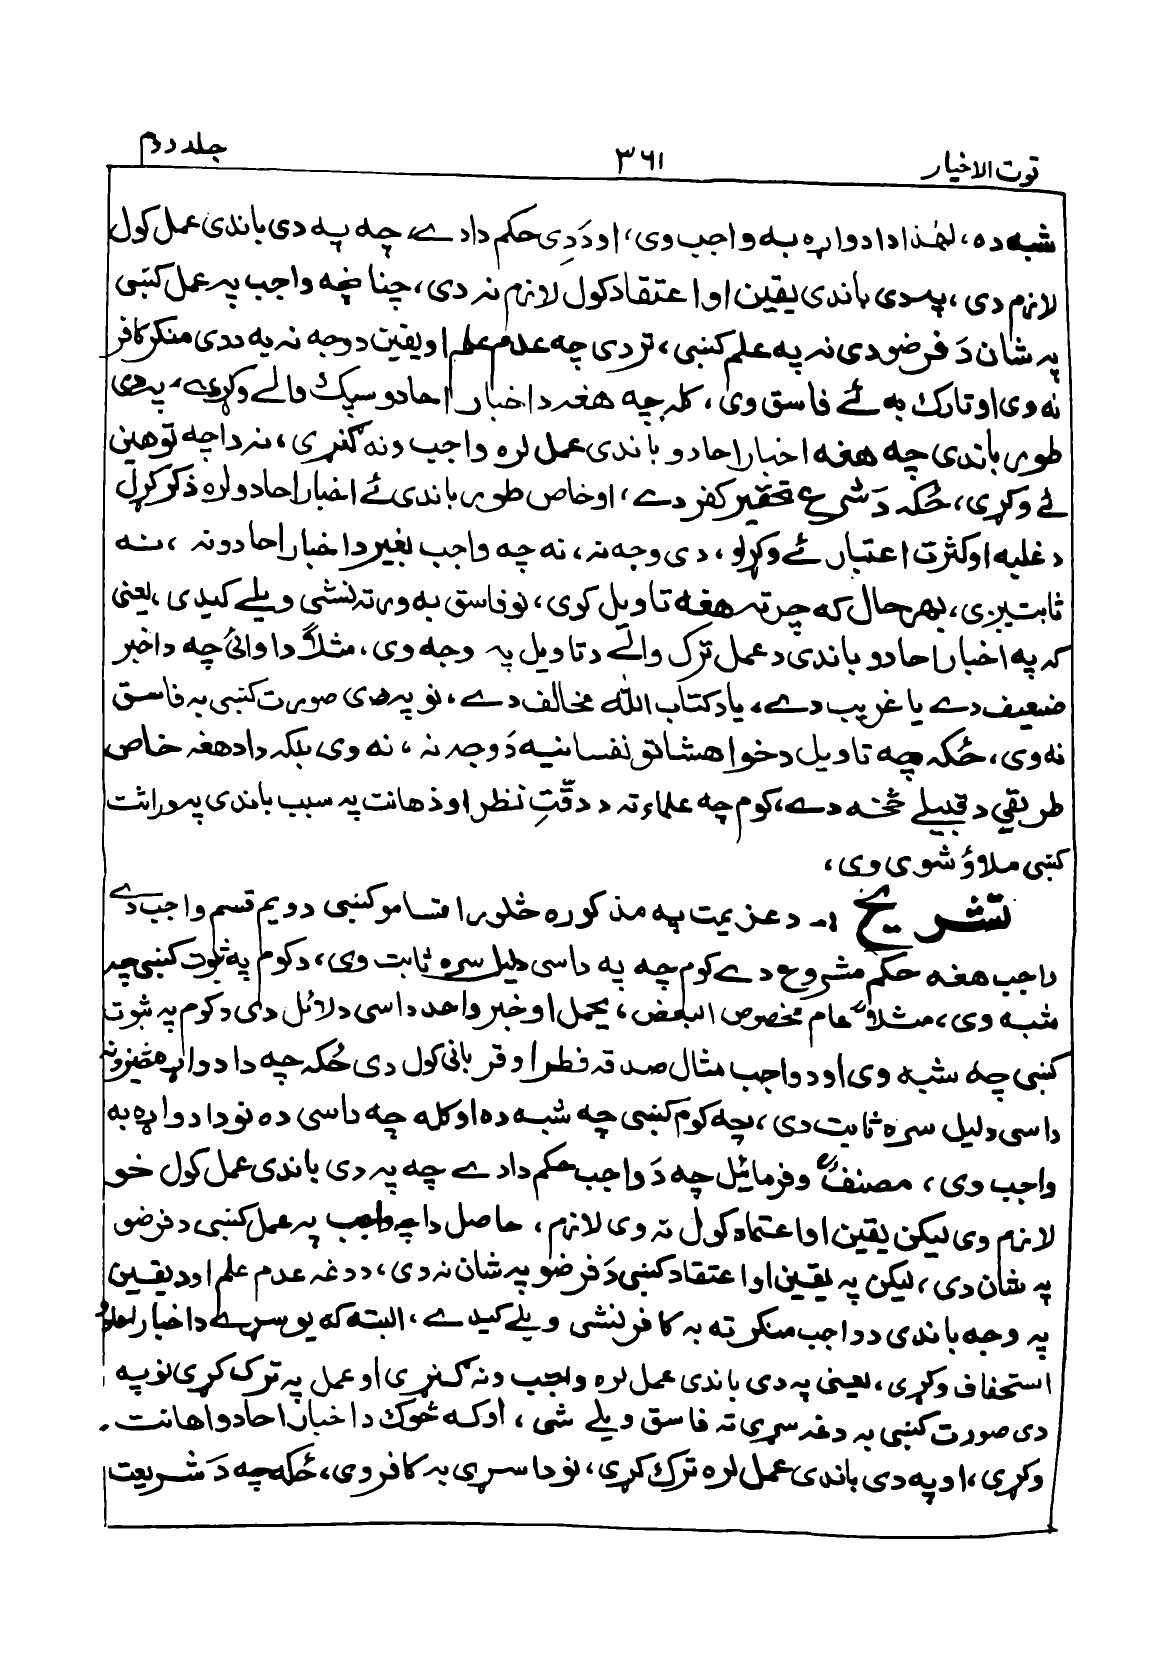 قوت الاخیار ۳۶۱ جلد دوم
شبه ده، لهٰذا دا دواړه به واجب وی، او دَدِی حکم دا دے، چه په دی باندی عمل کول
لازم دی، په دی باندی یقین او اعتقاد کول لازم نه دی، چنانچه واجب په عمل کښی
په شان دَ فرضو دی نه په علم کښی، تردی چه عدم علم او یقین د وجه نه به ددی منکر کافر
نه وی او تارک به ئے فاسق وی، کله چه هغه د اخبار احادو سپک والے وکړے، په دی
طور باندی چه هغه اخبار احادو باندی عمل لره واجب ونه ګنړی، نه دا چه توهین
ئے وکړی، ځکه دَ شرع تحقیر کفر دے، او خاص طور باندی ئے اخبار احادو لره ذکر کړل
د غلبه او کثرت اعتبار ئے وکړلو، دی وجه نه، نه چه واجب بغیر د اخبار احادو نه، نه
ثابتیږی، بهرحال که چرته هغه تاویل کوی، نو فاسق به ورته نشی ویلے کیدی، یعنی
که په اخبار احادو باندی د عمل ترک والے د تاویل په وجه وی، مثلاً دا وائی چه دا خبر
ضعیف دے یا غریب دے، یا د کتاب الله مخالف دے، نو په دی صورت کښی به فاسق
نه وی، ځکه چه تاویل د خواهشاتو نفسانیه دَ وجه نه، نه وی بلکه دا دهغه خاص
طریقي د قبیلے څخه دے، کوم چه علماء ته د دقّتِ نظر او ذهانت په سبب باندی په وراثت
کښی ملاؤ شوی وی،
تشریح :- د عزیمت په مذکوره څلور اقسامو کښی دویم قسم واجب دے
واجب هغه حکم مشروع دے کوم چه په داسی دلیل سره ثابت وی، د کوم په ثبوت کښی چه
شبه وی، مثلاً عام مخصوص البعض، مجمل او خبر واحد داسی دلائل دی د کوم په ثبوت
کښی چه شبه وی او د واجب مثال صدقه فطر او قربانی کول دی ځکه چه دا دواړه څیزونه
داسی دلیل سره ثابت دی، چه کوم کښی چه شبه ده او کله چه داسی ده نو دا دواړه به
واجب وی، مصنفؒ وفرمائیل چه دَ واجب حکم دا دے چه په دی باندی عمل کول خو
لازم وی لیکن یقین او اعتماد کول نه وی لازم، حاصل دا چه واجب په عمل کښی د فرضو
په شان دی، لیکن په یقین او اعتقاد کښی دَ فرضو په شان نه دی، د دغه عدم علم او د یقین
په وجه باندی د واجب منکر ته به کافر نشی ویلے کیدے، البته که یو سړے د اخبار احادو
استخفاف وکړی، یعنی په دی باندی عمل لره واجب ونه ګنړی او عمل په ترک کړی نو په
دی صورت کښی به دغه سړی ته فاسق ویلے شی، او که څوک د اخبار احادو اهانت
وکړی، او په دی باندی عمل لره ترک کړی، نو دا سړی به کافر وی، ځکه چه دَ شریعت